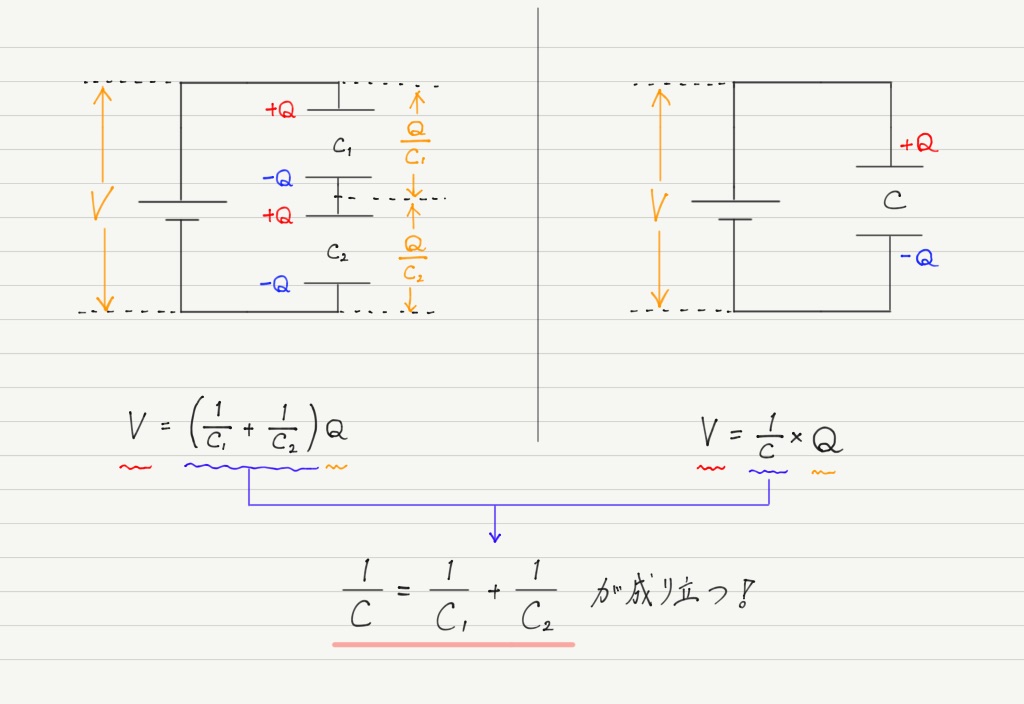 +Q
C₁
Q/C₁
-Q
V
+Q
C₂
Q/C₂
-Q
V
+Q
C
-Q
V = (1/C₁ + 1/C₂) Q
V = 1/C × Q
1/C = 1/C₁ + 1/C₂ が成り立つ!